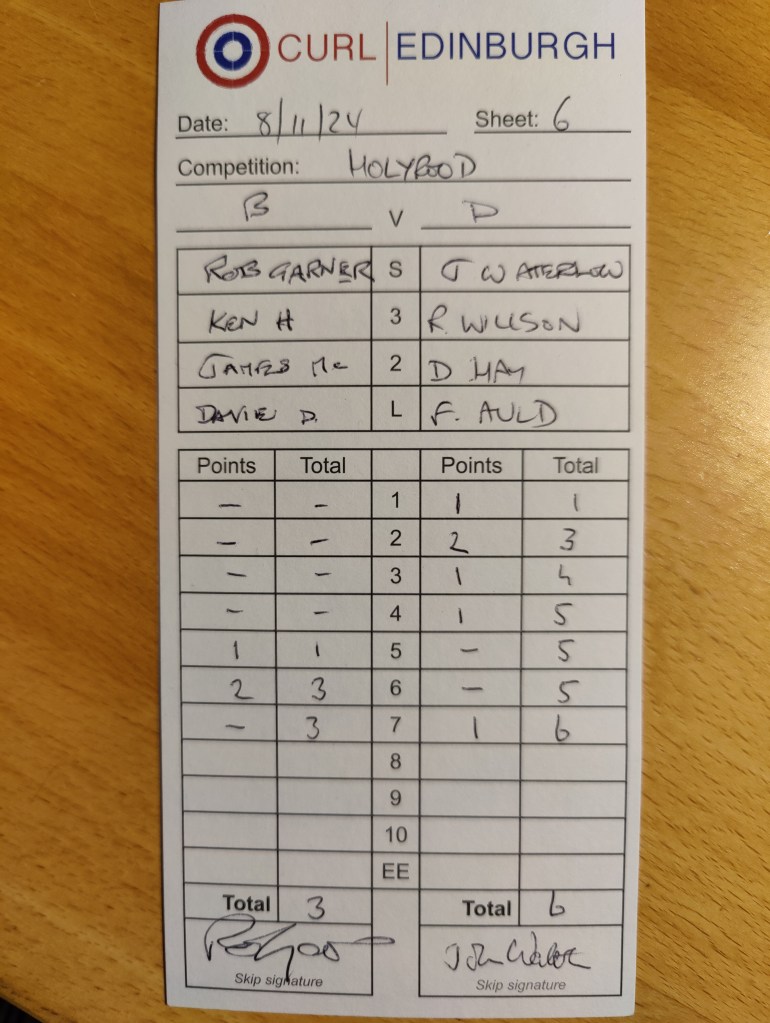 CURL | EDINBURGH
Date: 8/11/24 Sheet: 6
Competition: HOLYROOD
B V D
ROB GARNER S J WATERLOW
KEN H 3 R. WILLSON
JAMES Mc 2 D MAY
DAVIE D. L F. AULD
Points Total Points Total
- - 1 1 1
- - 2 2 3
- - 3 1 4
- - 4 1 5
1 1 5 - 5
2 3 6 - 5
- 3 7 1 6
8
9
10
EE
Total 3 Total 6
John
Skip signature Skip signature